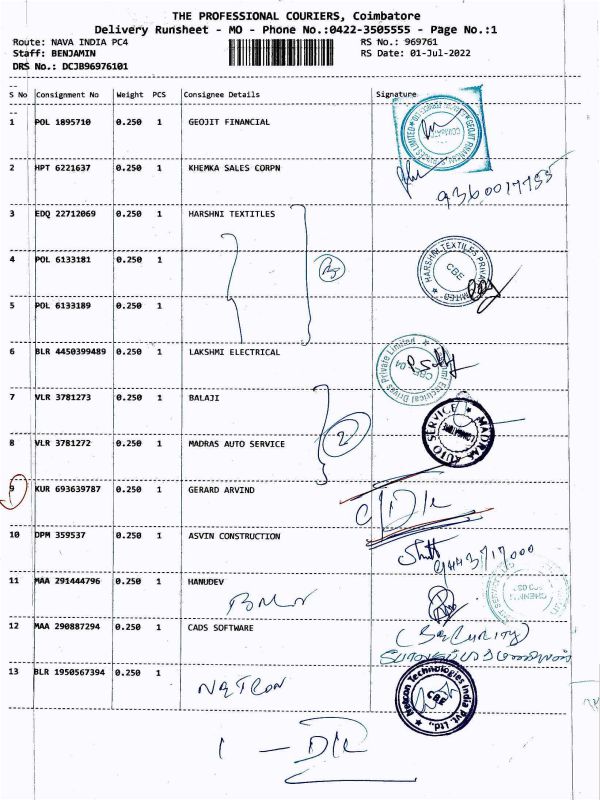 THE PROFESSIONAL COURIERS, Coimbatore
Delivery Runsheet - MO - Phone No.:0422-3505555 - Page No.:1
Route: NAVA INDIA PC4 RS No.: 969761
Staff: BENJAMIN RS Date: 01-Jul-2022
DRS No.: DCJB96976101
S No Consignment No Weight PCS Consignee Details Signature
1 POL 1895710 0.250 1 GEOJIT FINANCIAL
2 HPT 6221637 0.250 1 KHEMKA SALES CORPN
9360017755
3 EDQ 22712069 0.250 1 HARSHNI TEXTITLES
4 POL 6133181 0.250 1
HARSHNI TEXTILES PRIVATE LIMITED
CBE
5 POL 6133189 0.250 1
6 BLR 4450399489 0.250 1 LAKSHMI ELECTRICAL
Lakshmi Electrical Drives Private Limited
7 VLR 3781273 0.250 1 BALAJI
8 VLR 3781272 0.250 1 MADRAS AUTO SERVICE
2
MADRAS AUTO SERVICE
9 KUR 693639787 0.250 1 GERARD ARVIND
10 DPM 359537 0.250 1 ASVIN CONSTRUCTION
9443717000
11 MAA 291444796 0.250 1 HANUDEV
12 MAA 290887294 0.250 1 CADS SOFTWARE
(Security)
13 BLR 1950567394 0.250 1
NETCON
Netcon Technologies India Pvt. Ltd.,
CBE
1 - D/L